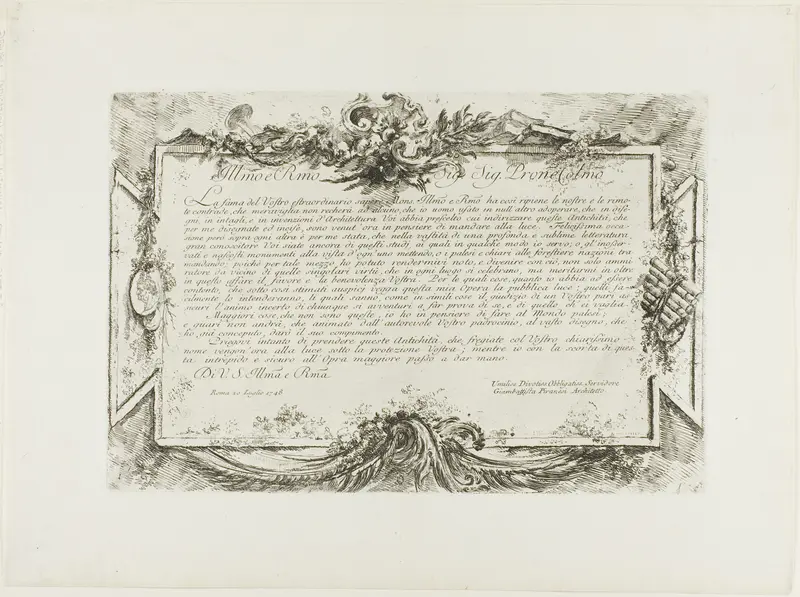 Illmo e Rmo Sig. Sig. Prone Colmo
La fama del Vostro estraordinario sapere, Mons. Illmo e Rmo ha così ripiene le nostre e le rimo-
te contrade, che meraviglia non recherà ad alcuno, che io uomo usato in null'altro adoperare, che in dise-
gni, in intagli, e in invenzioni d'Architettura Voi abbia prescelto cui indirizzare queste Antichità, che
per me disegnate ed incise, sono venut'ora in pensiero di mandare alla luce. Felicissima occa-
sione però sopra ogni altra è per me stata, che nella vastità di una profonda, e sublime letteratura
gran conoscitore Voi siate ancora di questi studj, ai quali in qualche modo io servo; o gl'inosser-
vati e nascosti monumenti alla vista d'ogn'uno mettendo, o i palesi e chiari alle forestiere nazioni tra-
mandando; poichè per tale mezzo ho potuto rendervivi noto, e divenire con ciò, non solo ammi-
ratore da vicino di quelle singolari virtù, che in ogni luogo si celebrano, ma meritarmi in oltre
in questo affare il favore e la benevolenza Vostra. Per le quali cose, quanto io abbia ad essere
contento, che sotto così stimati auspicj vegga questa mia Opera la pubblica luce; quelli fa-
cilmente lo intenderanno, li quali sanno, come in simili cose il giudizio di un Vostro pari as-
sicuri l'animo incerto di chiunque si avventuri a far prova di se, e di quello ch'ei vaglia.
Maggiori cose, che non sono queste, io ho in pensiero di fare al Mondo palesi;
e guari non andrà, che animato dall'autorevole Vostro padrocinio, al vasto disegno, che
ho già conceputo, darò il suo compimento.
Pregovi intanto di prendere queste Antichità, che fregiate col Vostro chiarissimo
nome vengon'ora alla luce sotto la protezione Vostra; mentre io con la scorta di ques-
ta intrepido e sicuro all'Opra maggiore passo a dar mano.
Di V. S. Illma e Rma
Roma 20 Luglio 1748
Umiliss. Divotiss. Obbligatiss. Servidore
Giambattista Piranesi Architetto.